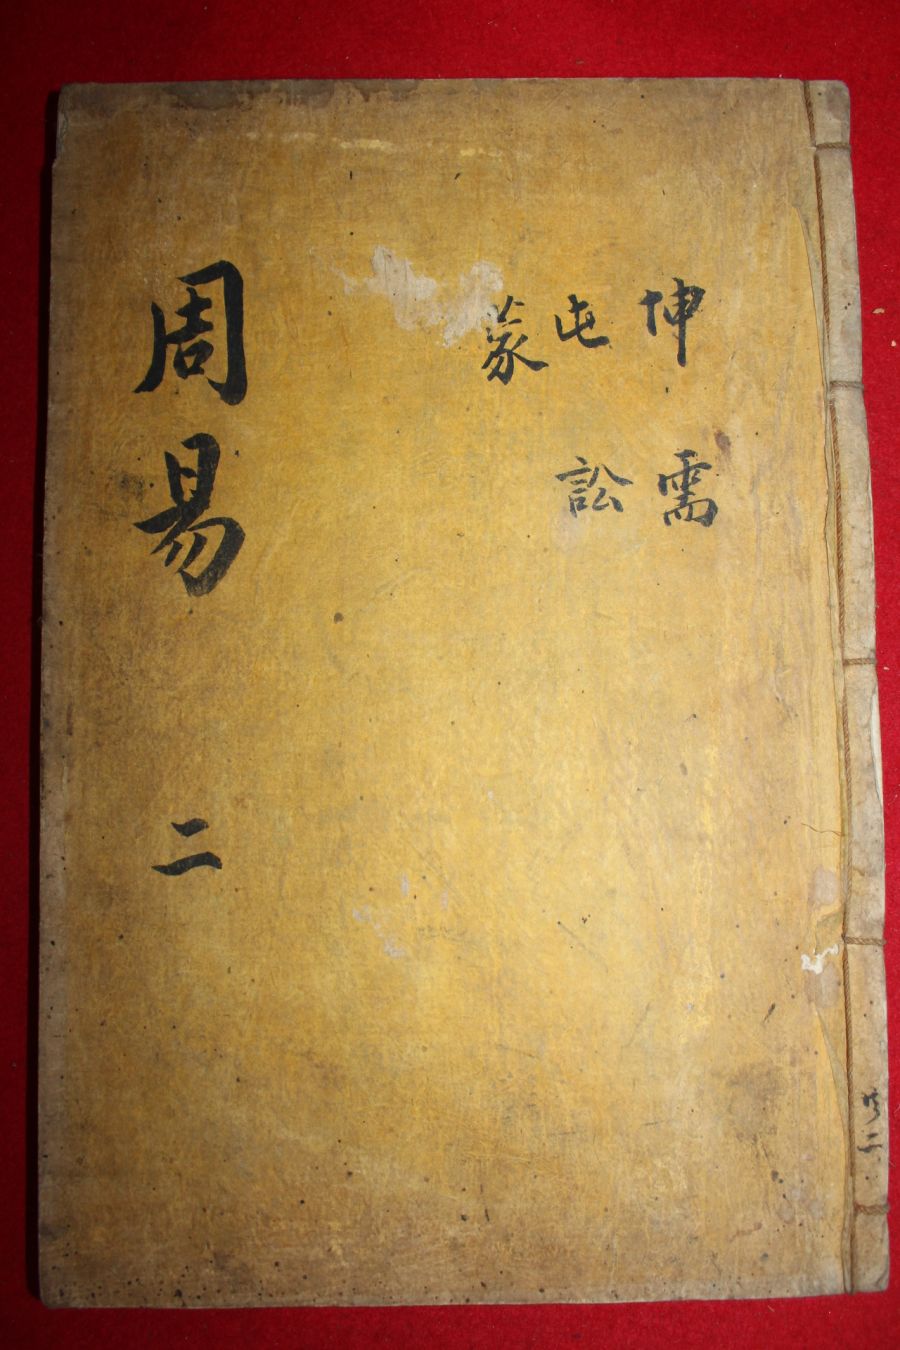 坤
屯
蒙
需
訟
周易 二